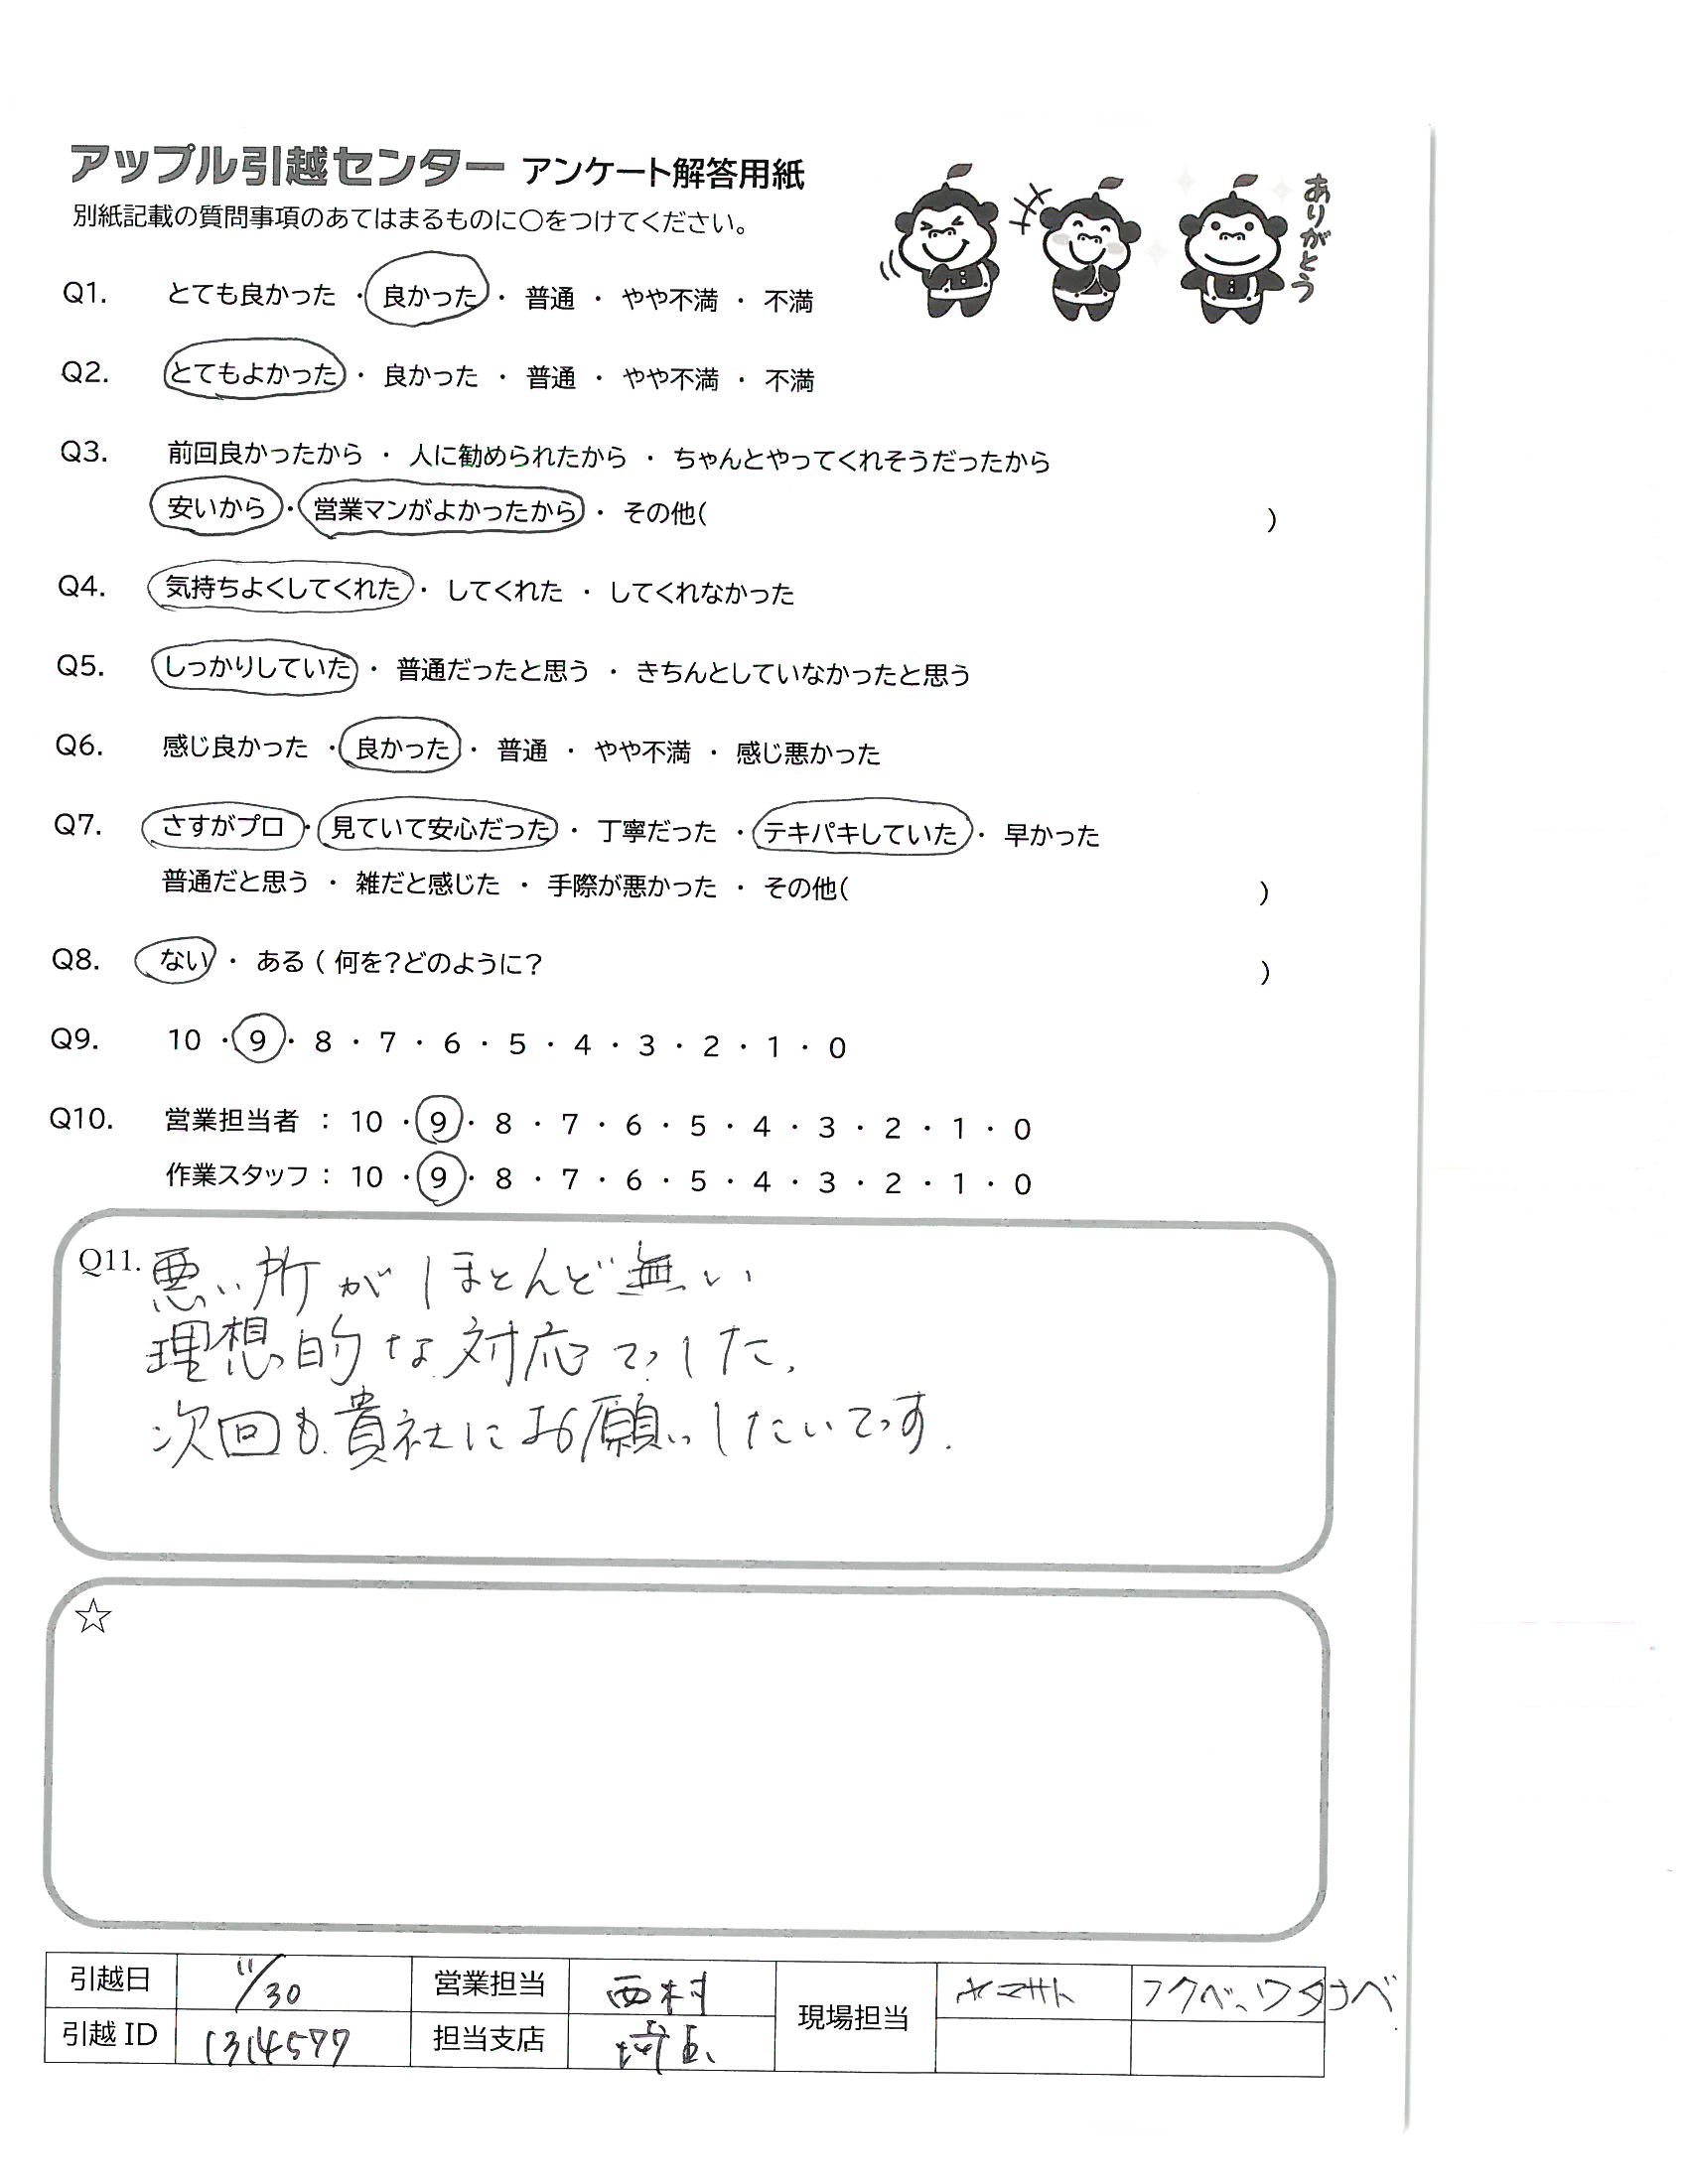 アップル引越センター アンケート解答用紙
別紙記載の質問事項のあてはまるものに〇をつけてください。
ありがとう
Q1. とても良かった ・ 良かった ・ 普通 ・ やや不満 ・ 不満
Q2. とてもよかった ・ 良かった ・ 普通 ・ やや不満 ・ 不満
Q3. 前回良かったから ・ 人に勧められたから ・ ちゃんとやってくれそうだったから
安いから ・ 営業マンがよかったから ・ その他( )
Q4. 気持ちよくしてくれた ・ してくれた ・ してくれなかった
Q5. しっかりしていた ・ 普通だったと思う ・ きちんとしていなかったと思う
Q6. 感じ良かった ・ 良かった ・ 普通 ・ やや不満 ・ 感じ悪かった
Q7. さすがプロ ・ 見ていて安心だった ・ 丁寧だった ・ テキパキしていた ・ 早かった
普通だと思う ・ 雑だと感じた ・ 手際が悪かった ・ その他( )
Q8. ない ・ ある ( 何を?どのように? )
Q9. 10 ・ 9 ・ 8 ・ 7 ・ 6 ・ 5 ・ 4 ・ 3 ・ 2 ・ 1 ・ 0
Q10. 営業担当者 : 10 ・ 9 ・ 8 ・ 7 ・ 6 ・ 5 ・ 4 ・ 3 ・ 2 ・ 1 ・ 0
作業スタッフ : 10 ・ 9 ・ 8 ・ 7 ・ 6 ・ 5 ・ 4 ・ 3 ・ 2 ・ 1 ・ 0
Q11. 悪い所がほとんど無い
理想的な対応でした.
次回も貴社にお願いしたいです.
☆
引越日 11/30 営業担当 西村 現場担当 ヤマサト フクベ、ワタナベ
引越 ID 1314577 担当支店 埼玉